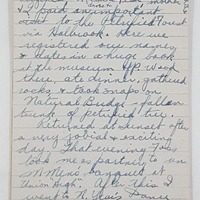 & I paid an important
to the Petrified Forest
via Holbrook. Here we
registered our names
& dates in a huge book
at the museum. We
there, ate dinner, gathered
rocks & took snaps on
Natural Bridge - fallen
trunk of petrified tree.
Returned at sunset after
a very jovial & exciting
day. That evening
took me as partner to an
banquet at
High. After this I
went to